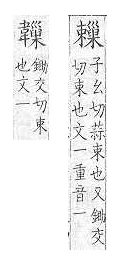 子幺切蒜束也又鋤交
切束也文一重音一
鋤交切束
也文一